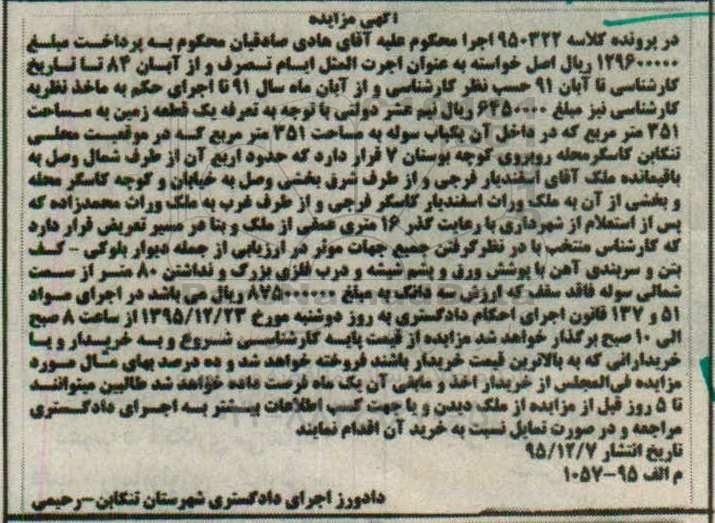 آگهی مزایده
در پرونده کلاسه ۹۵۰۳۲۲ اجرا محکوم علیه آقای هادی صادقیان محکوم به پرداخت مبلغ
۱۲۹۶۰۰۰۰۰ ریال اصل خواسته به عنوان اجرت المثل ایام تصرف و از آبان ۸۴ تا تاریخ
کارشناسی تا آبان ۹۱ حسب نظر کارشناسی و از آبان ماه سال ۹۱ تا اجرای حکم به ماخذ نظریه
کارشناسی نیز مبلغ ۶۴۵۰۰۰۰ ریال نیم عشر دولتی با توجه به تعرفه یک قطعه زمین به مساحت
۳۵۱ متر مربع که در داخل آن یکباب سوله به مساحت ۳۵۱ متر مربع که در موقعیت محلی
تنکابن کاسگرمحله روبروی کوچه بوستان ۷ قرار دارد که حدود اربع آن از طرف شمال وصل به
باقیمانده ملک آقای اسفندیار فرجی و از طرف شرق بخشی وصل به خیابان و کوچه کاسگر محله
و بخشی از آن به ملک وراث اسفندیار کاسگر فرجی و از طرف غرب به ملک وراث محمدزاده که
پس از استعلام از شهرداری با رعایت گذر ۱۶ متری عمقی از ملک و بنا در مسیر تعریض قرار دارد
که کارشناس منتخب با در نظرگرفتن جمیع جهات موثر در ارزیابی از جمله دیوار بلوکی - کف
بتن و سربندی آهن با پوشش ورق و پشم شیشه و درب فلزی بزرگ و نداشتن ۸۰ متر از سمت
شمالی سوله فاقد سقف که ارزش شش دانگ به مبلغ ریال می باشد در اجرای مواد
۵۱ و ۱۳۷ قانون اجرای احکام دادگستری به روز دوشنبه مورخ ۱۳۹۵/۱۲/۲۳ از ساعت ۸ صبح
الی ۱۰ صبح برگذار خواهد شد مزایده از قیمت پایه کارشناسی شروع و به خریدار و یا
خریدارانی که به بالاترین قیمت خریدار باشند فروخته خواهد شد و ده درصد بهای مال مورد
مزایده فی‌المجلس از خریدار اخذ و مابقی آن یک ماه فرصت داده خواهد شد طالبین میتوانند
تا ۵ روز قبل از مزایده از ملک دیدن و یا جهت کسب اطلاعات بیشتر به اجرای دادگستری
مراجعه و در صورت تمایل نسبت به خرید آن اقدام نمایند
تاریخ انتشار ۹۵/۱۲/۷
م الف ۹۵-۱۰۵۷
دادورز اجرای دادگستری شهرستان تنکابن-رحیمی